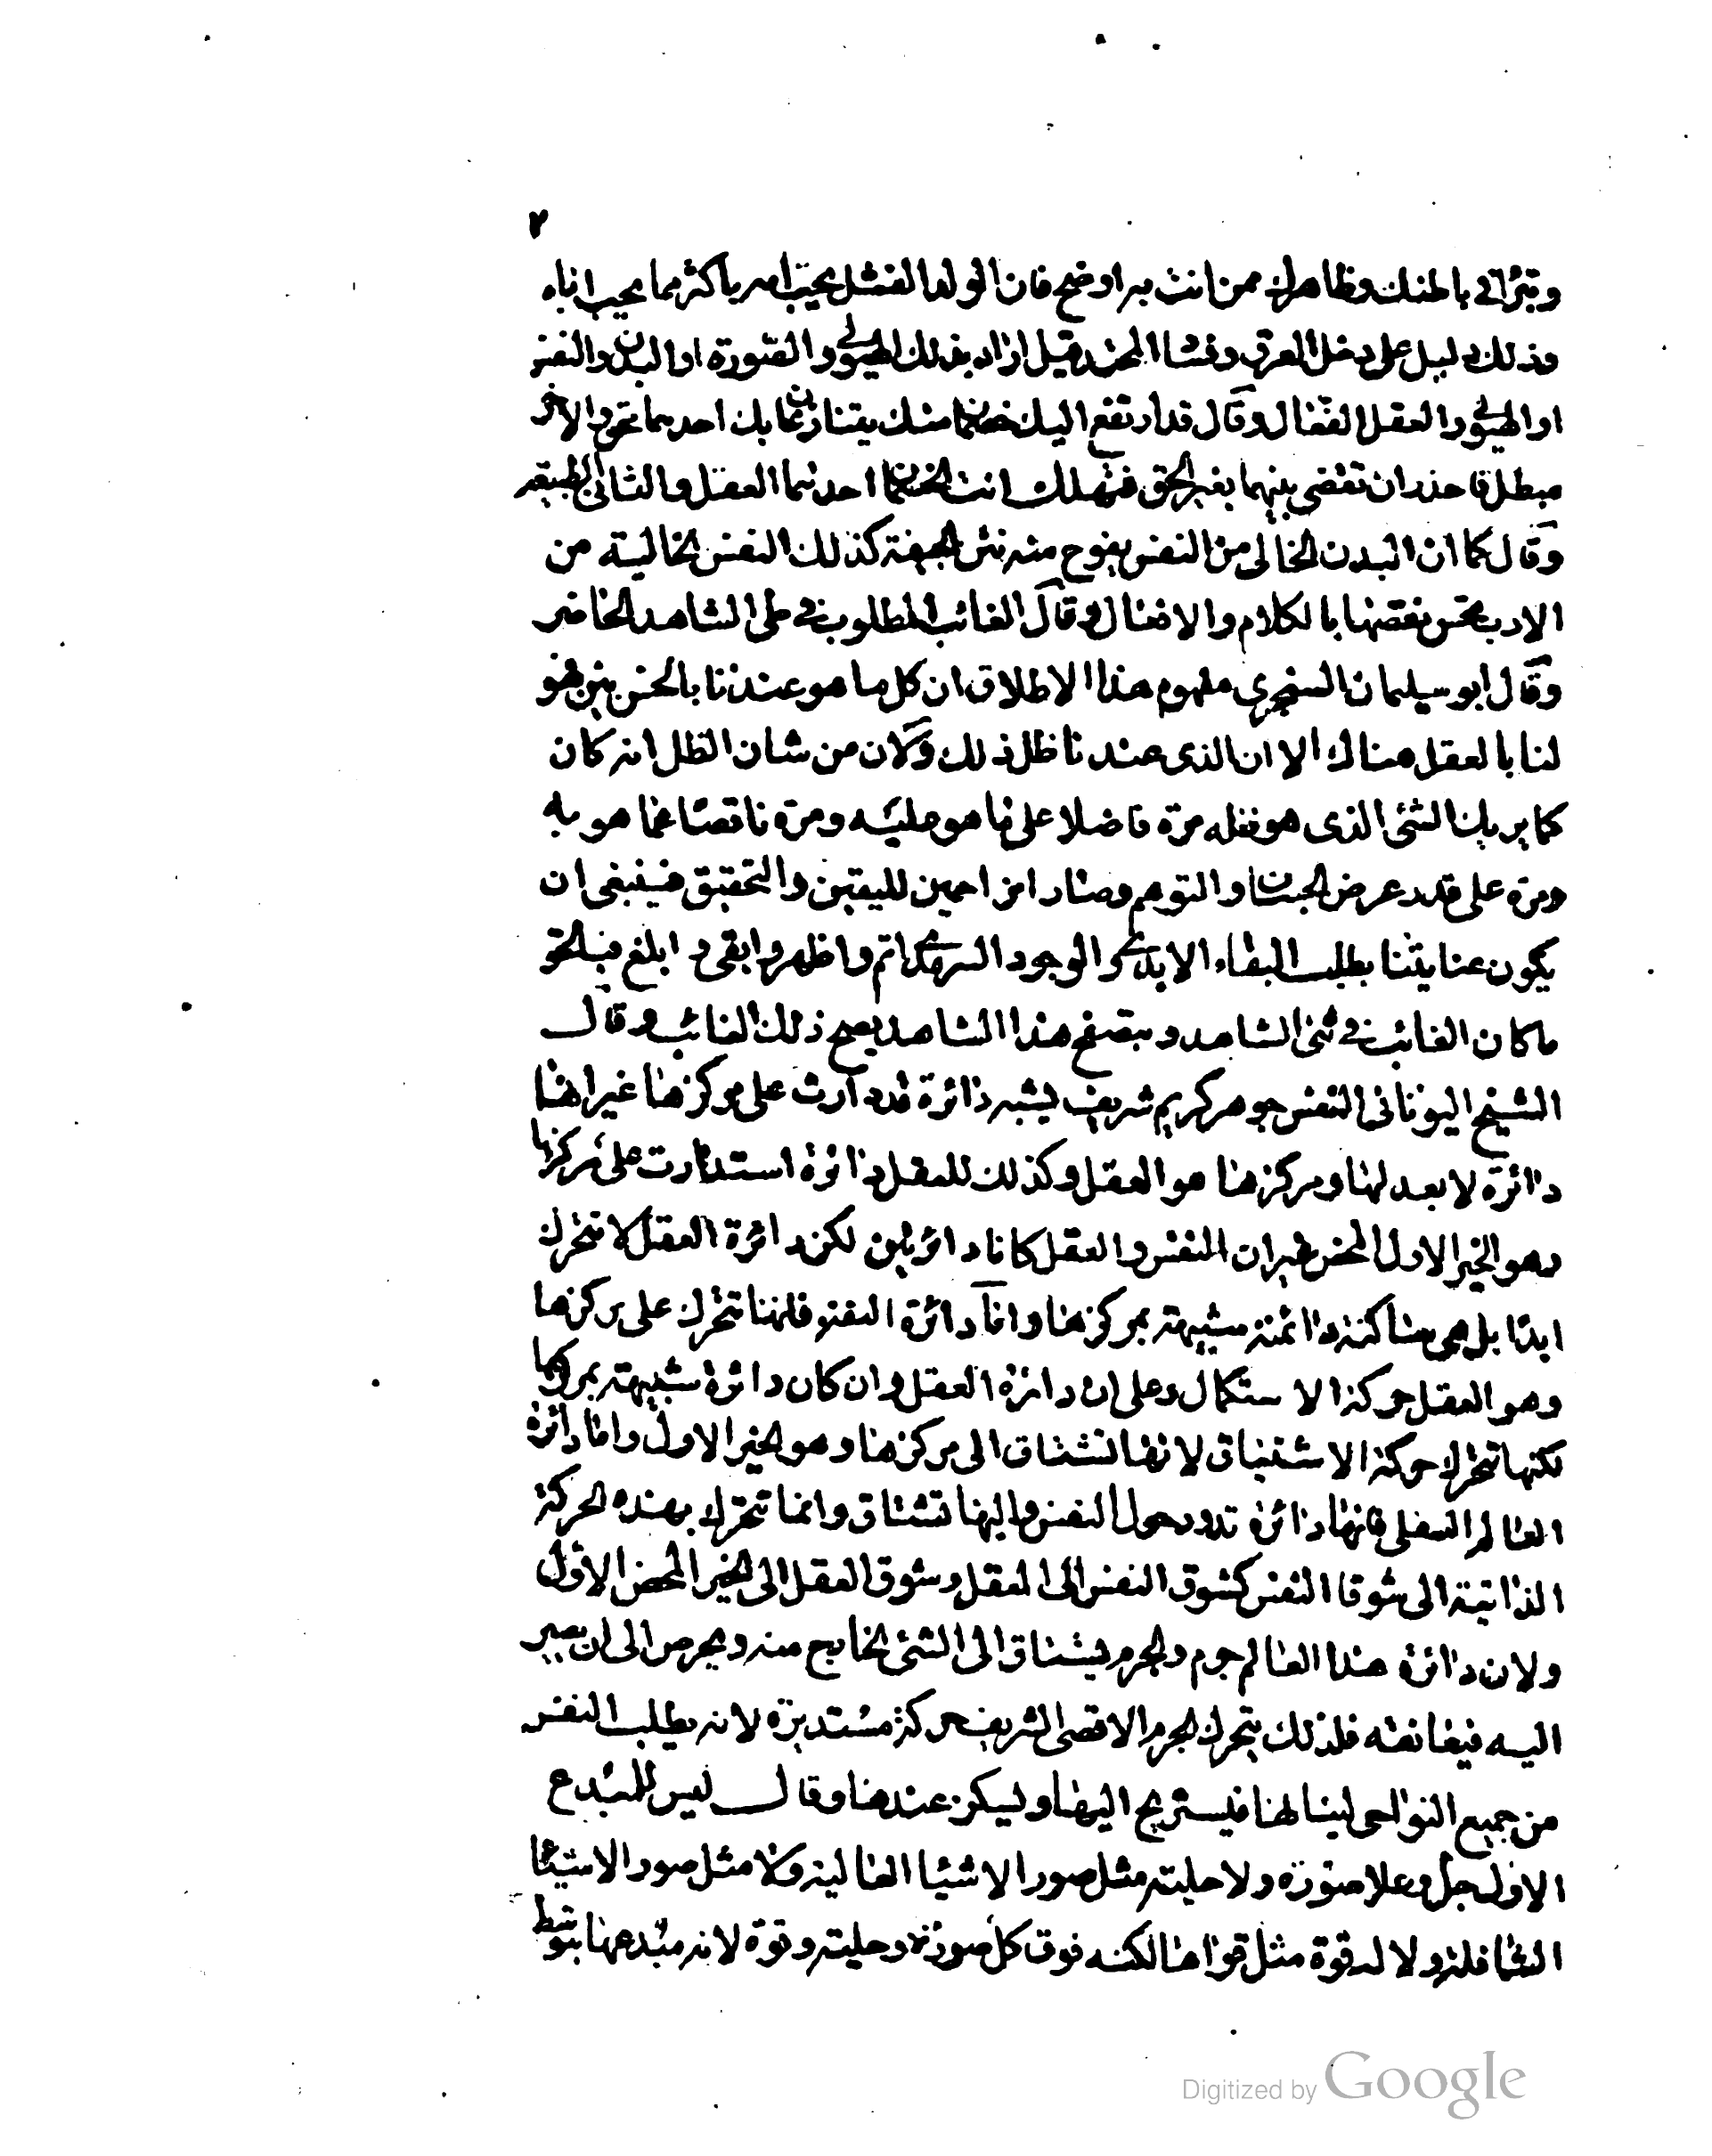 ٢
وتتراى باطنك وظاهرك ممن انت به اوضح فان الولد الفشل يحب امه باكثر مما يحب اباه
وذلك دليل على دخل العرق وفشا المحتد قيل اراد بذلك الهيولى والصورة او البدن والنفس
او الهيولى والعقل الفعال وقال قد ارتفع اليك خصمان منك يتنازعان بك احدهما محق والاخر
مبطل فاحذر ان تقضى بينهما بغير الحق فتهلك انت الخصمان احدهما العقل والثانى الطبيعه
وقال كما ان البدن الخالى من النفس يفوح منه نتن الجيفة كذلك النفس الخالية من
الادب يحس نقصها بالكلام والافعال وقال الغائب المطلوب فى طى الشاهد الحاضر
وقال ابو سليمان السنجرى مفهوم هذا الاطلاق ان كل ما هو عندنا بالحس بين فهو
لنا بالعقل هناك الا ان الذى عندنا ظل ذلك ولان من شان الظل انه كان
كما يريك الشئ الذى هو ظله مرة فاضلا على ما هو عليه ومرة ناقصا عما هو به
ومرة على قدره عرض الحسبان والتوهم وصارا مزاحمين لليقين والتحقيق فينبغى ان
يكون عنايتنا بطلب البقاء الابدى والوجود السرمدى اتم واظهر وابقى وابلغ فبالحق
ما كان الغائب فى شئ الشاهد وبتصفح هذا الشاهد يصح ذلك الغائب وقال
الشيخ اليونانى النفس جوهر كريم شريف يشبه دائرة قد دارت على مركزها غير انها
دائرة لا بعد لها ومركزها هو العقل وكذلك للعقل دائرة استدارت على مركزها
وهو الخير الاول المحض غير ان النفس والعقل كانا دائرتين لكن دائرة العقل لا تتحرك
ابدا بل هى ساكنة دائمة شبيهة بمركزها واما دائرة النفس فانها تتحرك على مركزها
وهو العقل حركة الاستكمال وعلى ان دائرة العقل وان كان دائرة شبيهة بمركزها
لكنها تتحرك حركة الاشتياق لانها تشتاق الى مركزها وهو الخير الاول واما دائرة
العالم السفلى فانها دائرة تدور حول النفس واليها تشتاق وانما تتحرك بهذه الحركة
الذاتية الى شوقا النفس كشوق النفس الى العقل وشوق العقل الى الخير المحض الاول
ولان دائرة هذا العالم جرم والجرم يشتاق الى الشئ الخارج منه ويحرص الى ان يصير
اليه فيعانقه فلذلك يتحرك الجرم الاقصى الشريف حركة مستديرة لانه يطلب النفس
من جميع النواحى لينالها فيستريح اليها ويسكن عندها وقال ليس للمبدع
الاول جل وعلا صورة ولا حلية مثل صور الاشيا العالية ولا مثل صور الاشيئا
السافلة ولا له قوة مثل قواها لكنه فوق كل صورة وحلية وقوة لانه مبدعها بتوسط
Digitized by Google